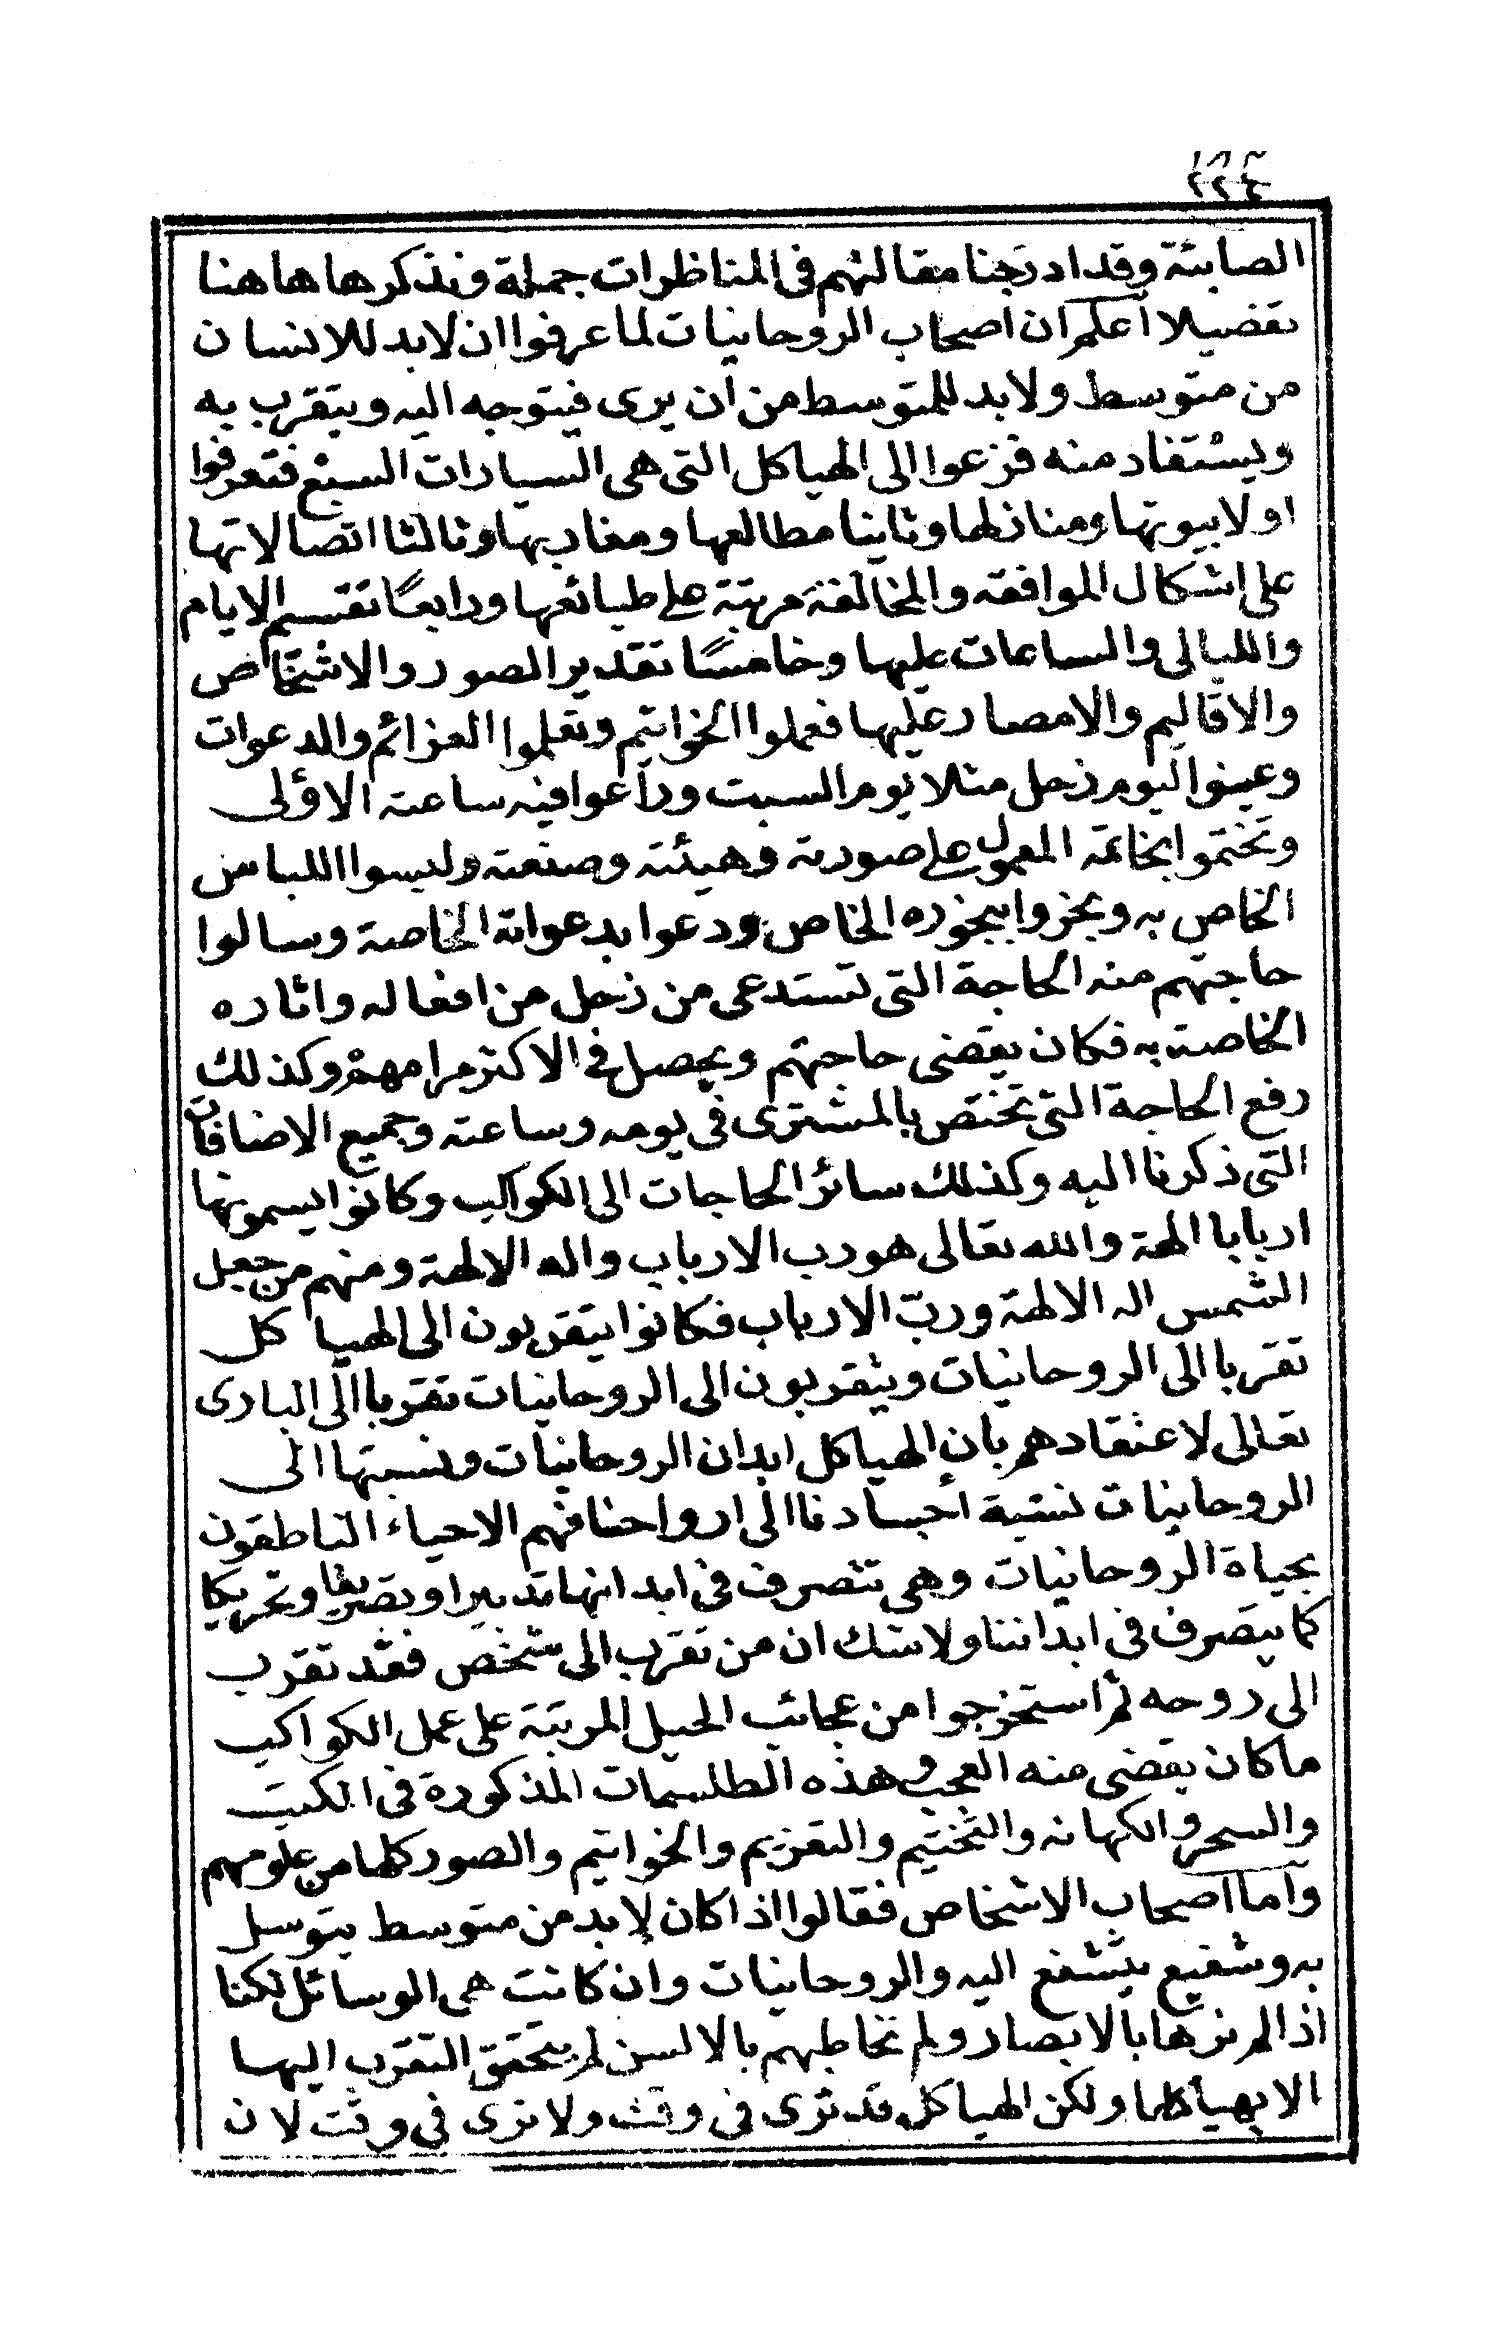 ٢٢٤
الصابئة وقد ادرجنا مقالتهم فى المناظرات جملة ونذكرها هاهنا
تفضيلا اعلم ان اصحاب الروحانيات لما عرفوا ان لابد للانسان
من متوسط ولابد للمتوسط من ان يرى فيتوجه اليه ويتقرب به
ويستفاد منه فزعوا الى الهياكل التى هى السيارات السبع فتعرفوا
اولا بيوتها ومنازلها وثانيا مطالعها ومغاربها وثالثا اتصالاتها
على اشكال الموافقه والمخالفة مرتبة على طبائعها ورابعًا تقسيم الايام
والليالى والساعات عليها وخامسًا تقدير الصور والاشخاص
والاقاليم والامصار عليها فعملوا الخواتيم وتعلموا العزائم والدعوات
وعينوا ليوم زحل مثلا يوم السبت وراعوا فيه ساعته الاولى
وتختموا بخاتمه المعمول على صورته وهيئته وصنعته ولبسوا اللباس
الخاص به وبخروا ببخوره الخاص ودعوا بدعواته الخاصة وسالوا
حاجتهم منه الحاجة التى تستدعى من زحل من افعاله واثاره
الخاصة به فكان يقضى حاجتهم ويحصل فى الاكثر مرامهم وكذلك
رفع الحاجة التى تختص بالمشترى فى يومه وساعته وجميع الاضافات
التى ذكرنا اليه وكذلك سائر الحاجات الى الكواكب وكانوا يسمونها
اربابا الهة والله تعالى هو رب الارباب واله الالهة ومنهم من جعل
الشمس اله الالهة وربّ الارباب فكانوا يتقربون الى الهياكل
تقربا الى الروحانيات ويتقربون الى الروحانيات تقربا الى البارى
تعالى لاعتقادهم بان الهياكل ابدان الروحانيات ونسبتها الى
الروحانيات نسبة أجسادنا الى ارواحنا فهم الاحياء الناطقون
بحياة الروحانيات وهى تتصرف فى ابدانها تدبيرا وتصريفا وتحريكا
كما يتصرف فى ابداننا ولاشك ان من تقرب الى شخص فقد تقرب
الى روحه ثم استخرجوا من عجائب الحيل المرتبة على عمل الكواكب
ما كان يقضى منه العجب وهذه الطلسمات المذكورة فى الكتب
والسحر والكهانه والتختيم والتعزيم والخواتيم والصور كلها من علومهم
وأما أصحاب الاشخاص فقالوا اذا كان لابد من متوسط يتوسل
به وشفيع يتشفع اليه والروحانيات وان كانت هى الوسائل لكنا
اذا لم نرها بالابصار ولم نخاطبهم بالالسن لم يتحقق التقرب اليها
الا بهياكلها ولكن الهياكل قد ترى فى وقت ولا ترى فى وقت لان